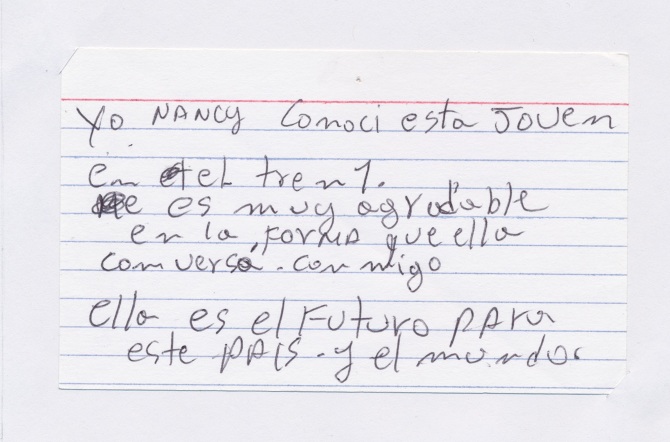 Yo NANCY Conoci esta JOVEN
en el tren 1.
es muy agradable
en la FORMA que ella
conversa. conmigo
ella es el FUTURO PARA
este PAIS. y el mundo.